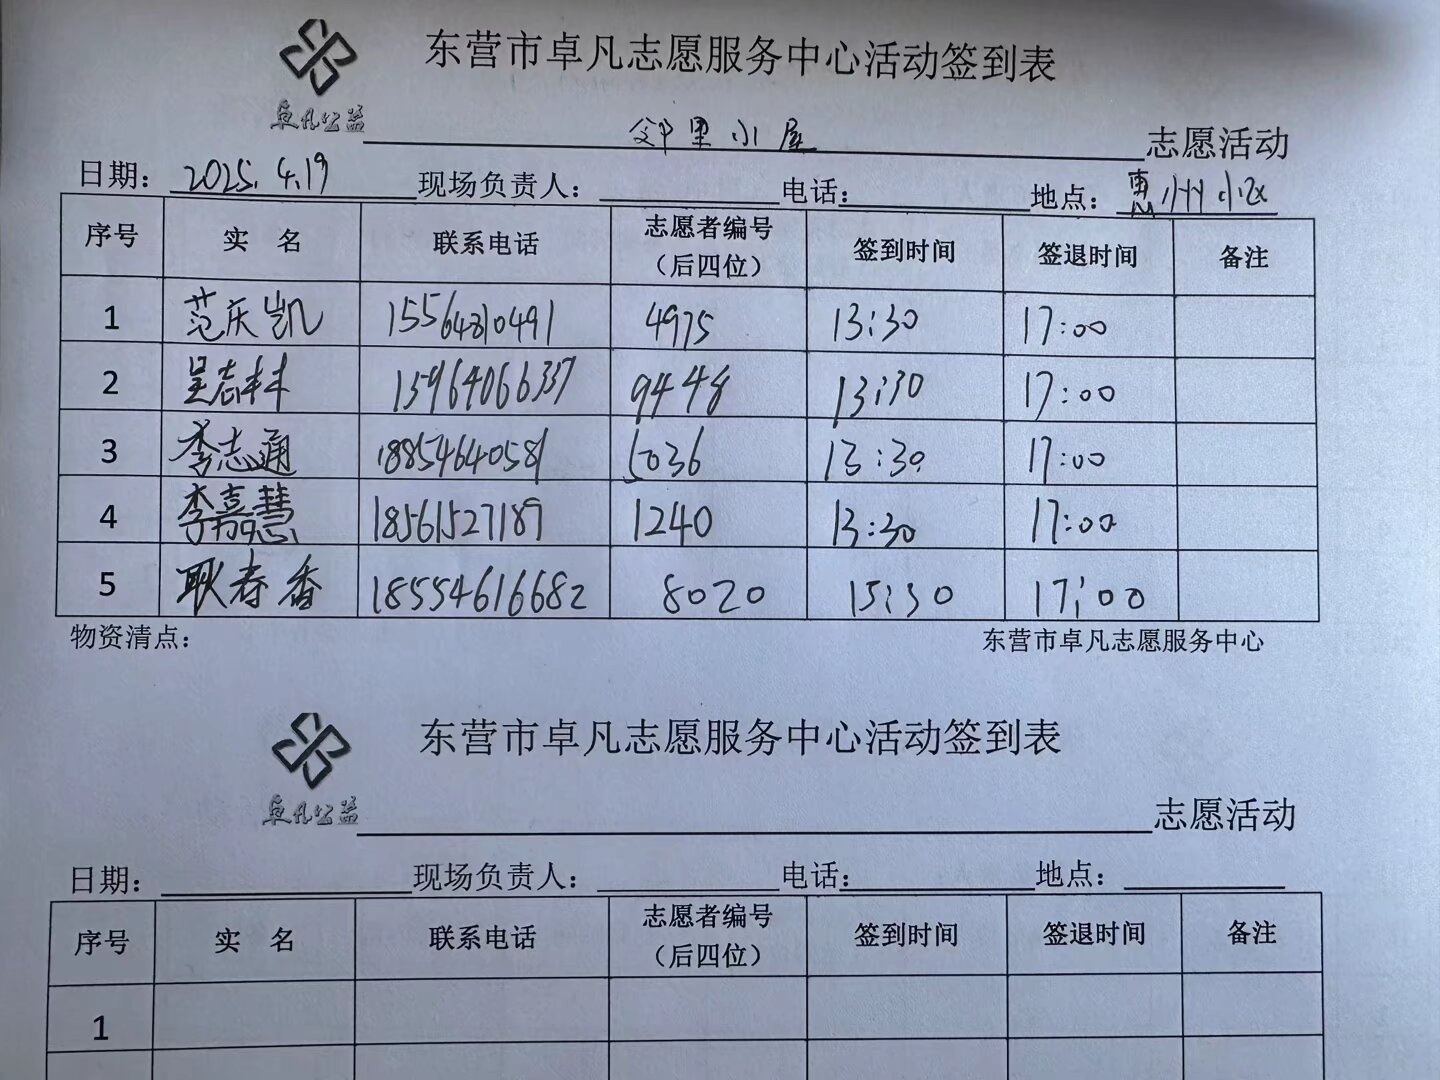 东营市卓凡志愿服务中心活动签到表
卓凡公益
邻里小屋 志愿活动
日期: 2025.4.19 现场负责人: 电话: 地点: 惠州小区
序号 实 名 联系电话 志愿者编号（后四位） 签到时间 签退时间 备注
1 范庆凯 15564810491 4975 13:30 17:00
2 吴志丰 15964066337 9448 13:30 17:00
3 李志通 18854640581 5036 13:30 17:00
4 李嘉慧 18561527189 1240 13:30 17:00
5 耿春香 18554616682 8020 15:30 17:00
物资清点: 东营市卓凡志愿服务中心
东营市卓凡志愿服务中心活动签到表
卓凡公益
志愿活动
日期: 现场负责人: 电话: 地点:
序号 实 名 联系电话 志愿者编号（后四位） 签到时间 签退时间 备注
1